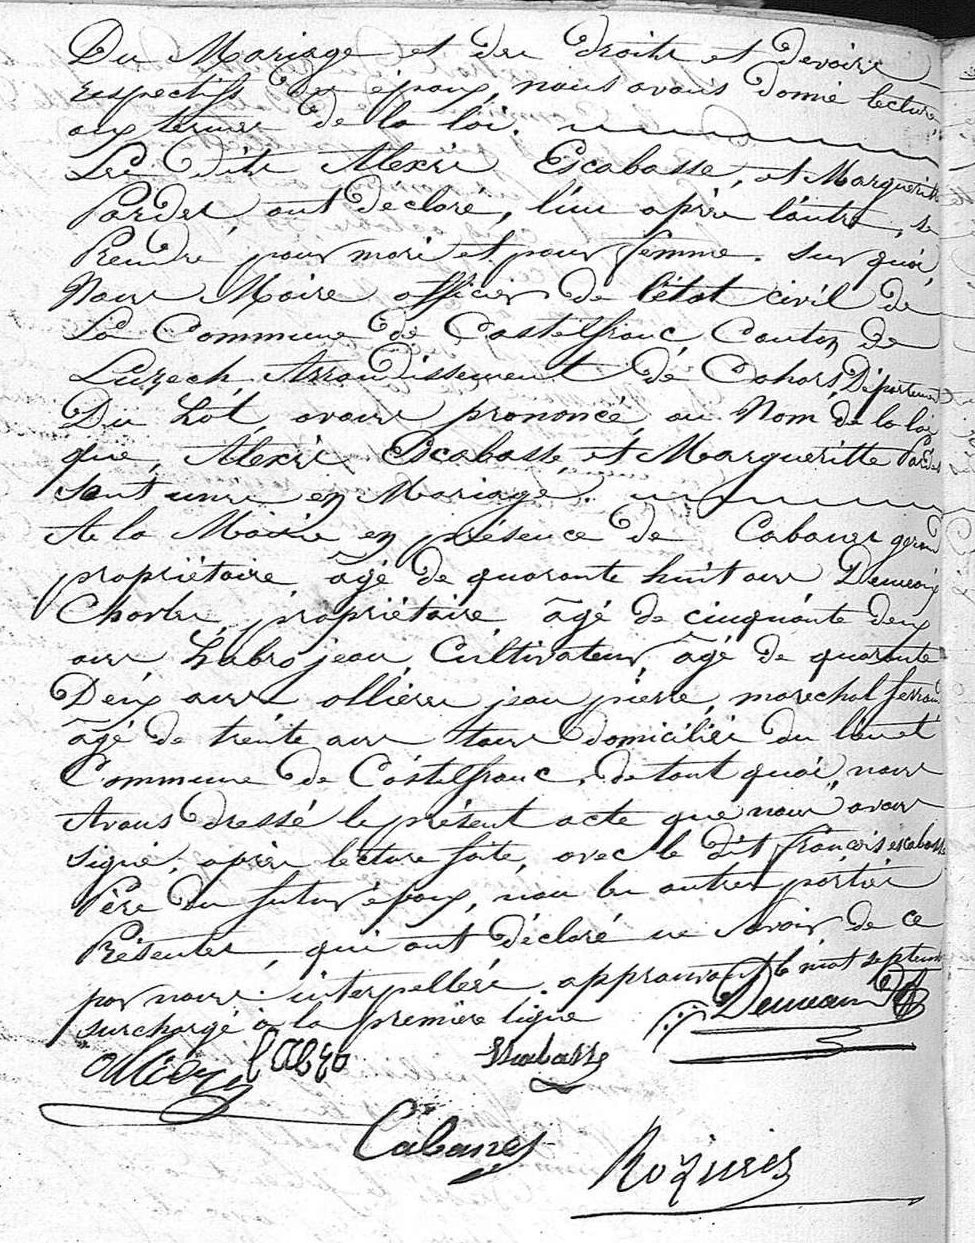 Du Mariage et des droits et devoirs
respectifs des époux, nous avons donné lecture
aux termes de la loi.
Les dits Alexis Escabasse, et Marguerite
Pardes, ont déclaré, l'un après l'autre, se
Prendre pour mari et pour femme. Sur quoi
Nous Maire officier de l'état civil de
La Commune de Castelfranc Canton de
Luzech Arrondissement de Cahors Département
Du Lot, avons prononcé, au Nom de la loi
que, Alexis Escabasse et Margueritte Pardes
sont unis en Mariage.
A la Mairie en présence de Cabanes
propriétaire âgé de quarante huit ans
Charles, propriétaire, âgé de cinquante deux
ans Labro jean, Cultivateur, âgé de quarante
Deux ans ollières jean pierre, marechal ferrant
âgé de trente ans tous domiciliés du lieu et
Commune de Castelfranc, de tout quoi, nous
Avons dressé le présent acte que nous avons
signé, après lecture faite, avec le dit françois escabasse
Père du futur époux, non les autres parties
Présentes, qui ont déclaré ne savoir de ce
par nous interpellés. approuvant le mot septembre
surchargé à la première ligne
Labro
Escabasse
Cabanes